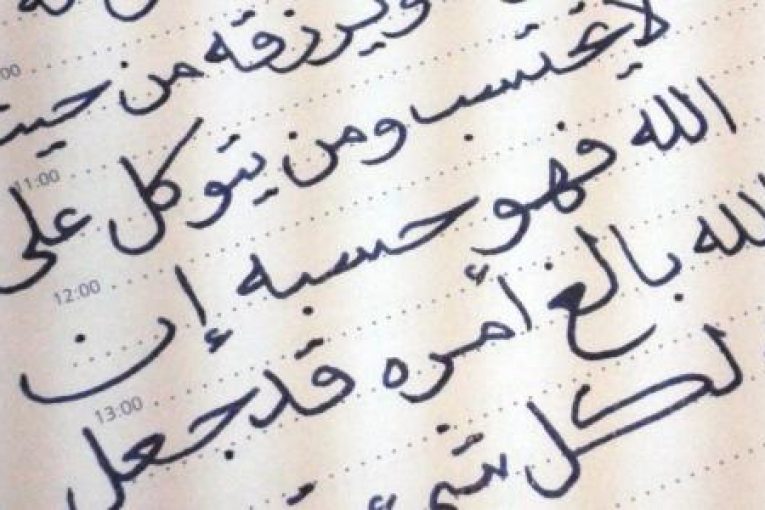 ويرزقه من حيث
لا يحتسب ومن يتوكل على
الله فهو حسبه إن
الله بالغ أمره قد جعل
لكل شيء
11:00
12:00
13:00